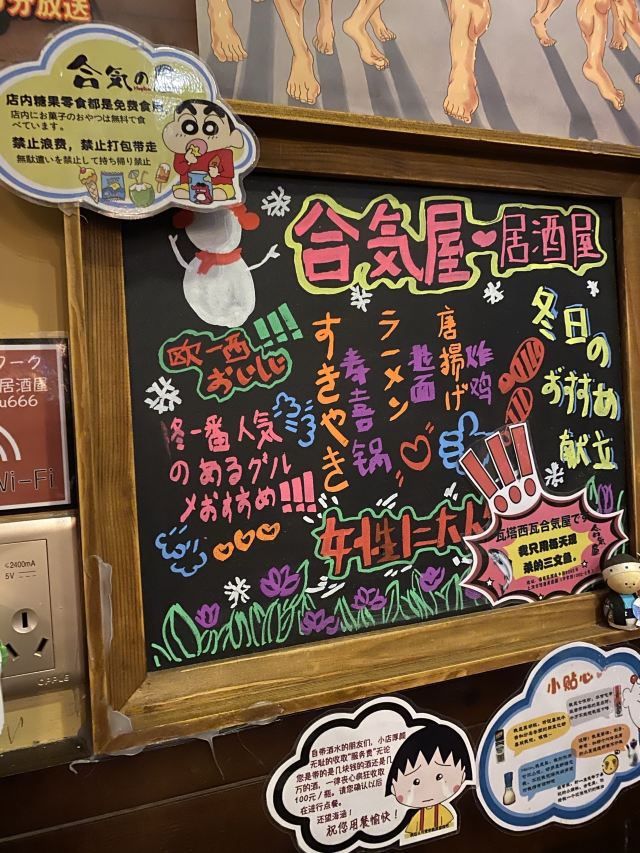 分放送
合気の
店内糖果零食都是免费食用
店内にお菓子のおやつは無料で食
べています。
禁止浪费，禁止打包带走
無駄遣いを禁止して持ち帰り禁止
合気屋❤居酒屋
冬日の
おすすめ
献立
唐揚げ
炸鸡
ラーメン
拉面
すきやき
寿喜锅
欧一西!!!
おいしい
冬一番人気
のあるグル
メおすすめ!!!
女性に大人
!!!
瓦塔西瓦合気屋です
我只用每天现
杀的三文鱼。
合気屋
ワーク
居酒屋
u666
Wi-Fi
≤2400mA
5V
OPPLE
自带酒水的朋友们，小店厚颜
无耻的收取"服务费"无论
您是带的是几块钱的酒还是几
万的酒，一律丧心病狂收取
100元/瓶。请您确认以后
在进行点餐。
还望海涵！
祝您用餐愉快！
小贴心